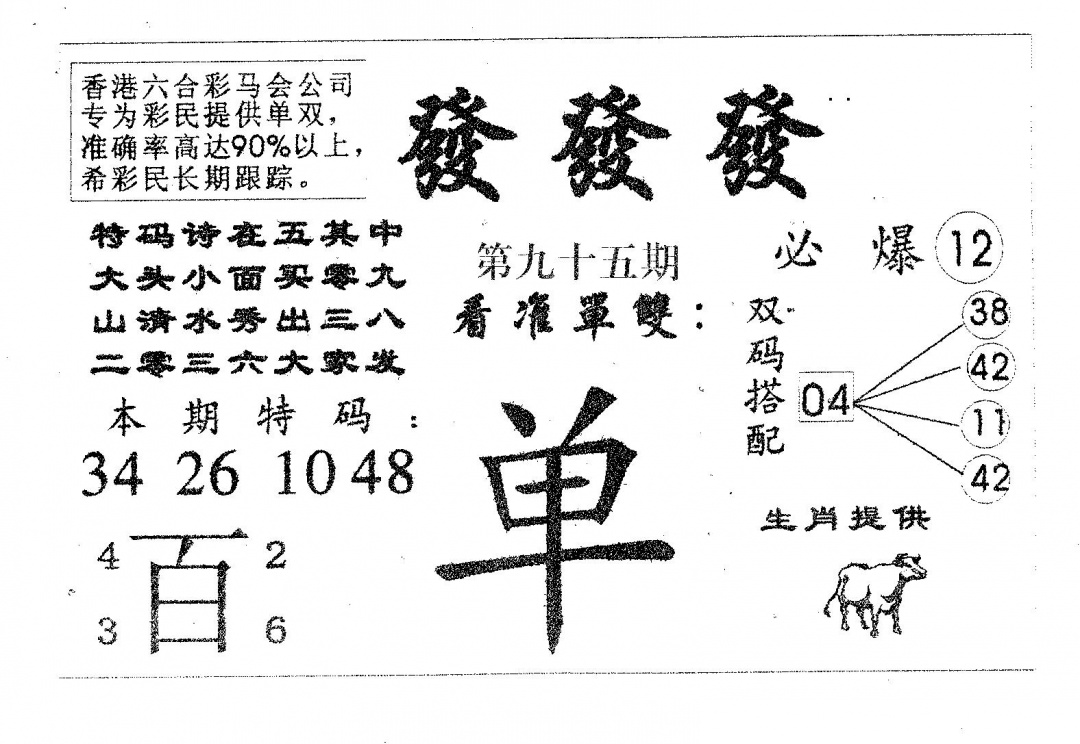 香港六合彩马会公司
专为彩民提供单双，
准确率高达90%以上，
希彩民长期跟踪。
發發發
特码诗在五其中
大头小面买零九
山清水秀出三八
二零三六大家发
本期特码：
34 26 10 48
4 百 2
3 6
第九十五期
看准單雙：
单
必爆 12
双码搭配
04
38
42
11
42
生肖提供